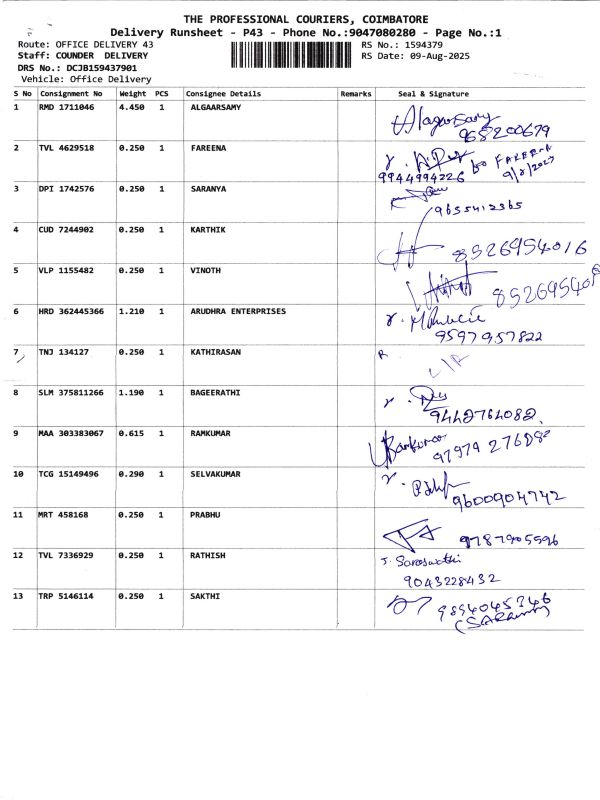 THE PROFESSIONAL COURIERS, COIMBATORE
Delivery Runsheet - P43 - Phone No.:9047080280 - Page No.:1
Route: OFFICE DELIVERY 43 RS No.: 1594379
Staff: COUNDER DELIVERY RS Date: 09-Aug-2025
DRS No.: DCJB159437901
Vehicle: Office Delivery
S No Consignment No Weight PCS Consignee Details Remarks Seal & Signature
1 RMD 1711046 4.450 1 ALGAARSAMY Alagarsamy
968200679
2 TVL 4629518 0.250 1 FAREENA for FAREENA
9944994226
3 DPI 1742576 0.250 1 SARANYA
9655412365
4 CUD 7244902 0.250 1 KARTHIK 8526954016
5 VLP 1155482 0.250 1 VINOTH
6 HRD 362445366 1.210 1 ARUDHRA ENTERPRISES
9597957822
7 TNJ 134127 0.250 1 KATHIRASAN R
8 SLM 375811266 1.190 1 BAGEERATHI
9442764082
9 MAA 303383067 0.615 1 RAMKUMAR Ramkumar
10 TCG 15149496 0.290 1 SELVAKUMAR
9600904742
11 MRT 458168 0.250 1 PRABHU
9787905596
12 TVL 7336929 0.250 1 RATHISH J. Saraswathi
9043228432
13 TRP 5146114 0.250 1 SAKTHI